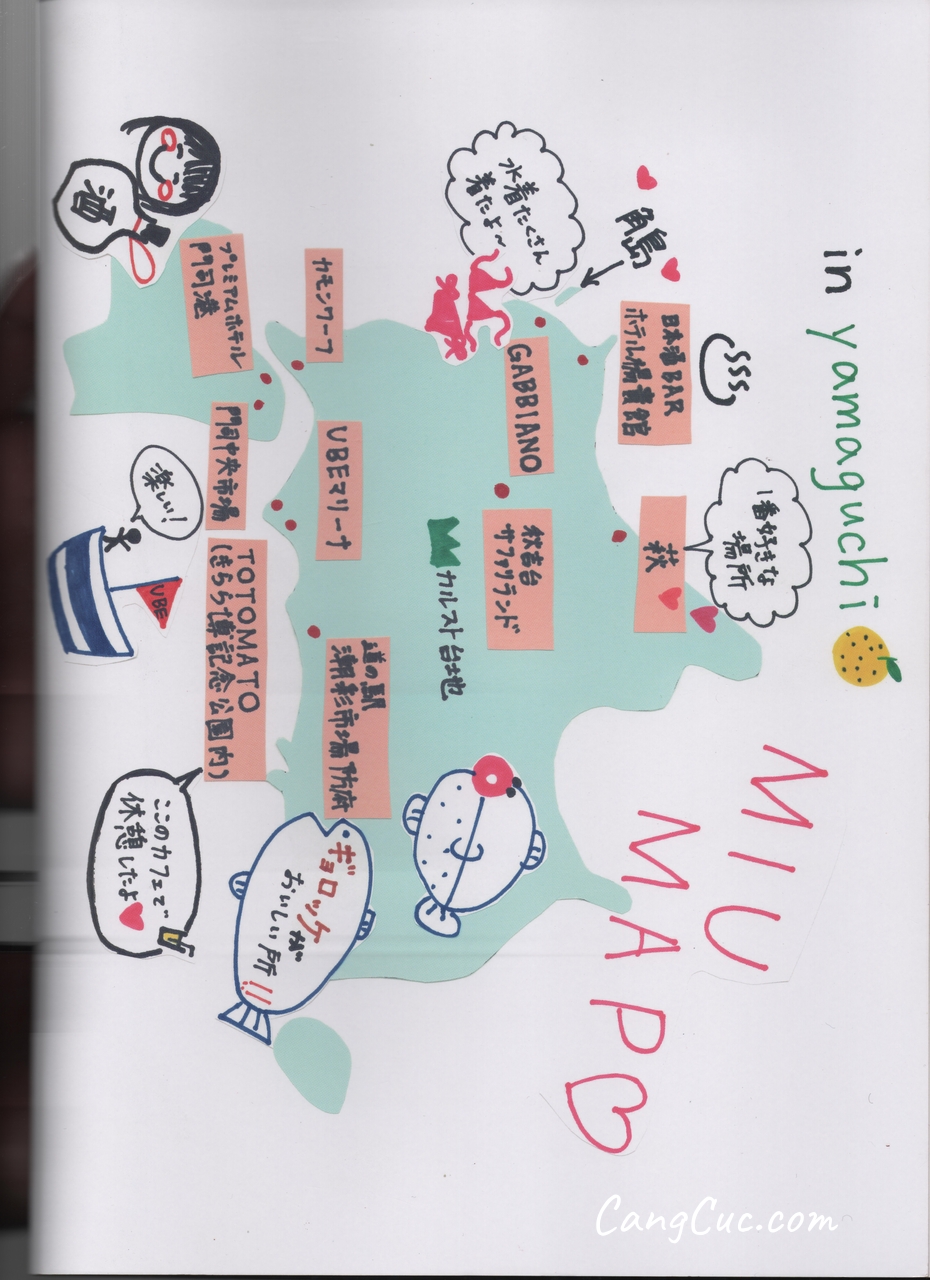 in yamaguchi
MIU
MAP
1番好きな
場所
萩
日本酒BAR
ホテル楊貴館
角島
水着たくさん
着たよ~
GABBIANO
秋吉台
サファリランド
カルスト台地
カモンワーフ
UBEマリーナ
道の駅
潮彩市場防府
プレミアムホテル
門司港
門司中央市場
TOTOMATO
(きらら博記念公園内)
酒
楽しい!
UBE
ギョロッケが
おいしい所!!!
ここのカフェで
休憩したよ
CangCuc.com